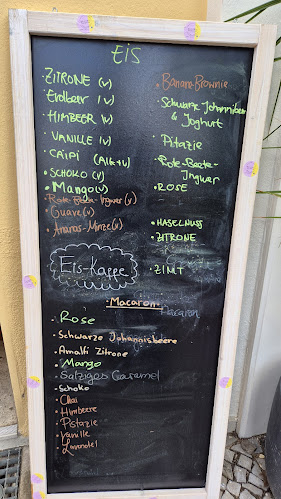 EIS
ZITRONE (v)
Erdbeer (v)
HIMBEER (v)
VANILLE (v)
CAIPI (Alk+v)
SCHOKO (v)
Mango (v)
Rote-Beete-Ingwer (v)
Guave (v)
Ananas-Minze (v)
Banane-Brownie
Schwarze Johannisbeere
& Joghurt
Pitazie
Rote-Beete-
Ingwer
ROSE
HASELNUSS
ZITRONE
ZIMT
Eis-Kaffee
Macaron
Rose
Schwarze Johannisbeere
Amalfi Zitrone
Mango
Salziges Caramel
Schoko
Chai
Himbeere
Pistazie
Vanille
Lavendel